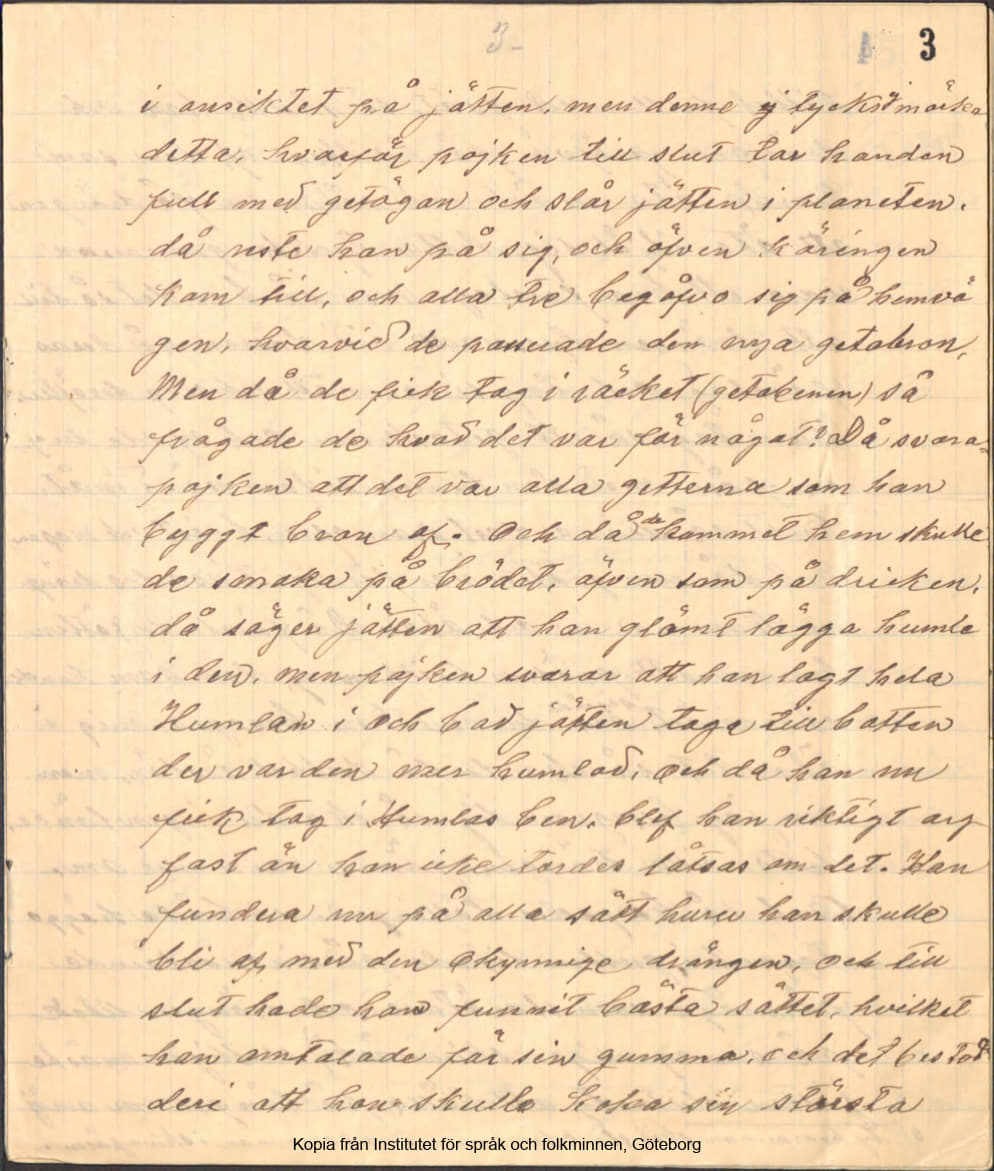 3-
3
i ansiktet på jätten, men denne ej tycks märka
detta, hvarför pojken till slut tar handen
full med getögon och slår jätten i planeten.
då reste han på sig, och äfven käringen
kom till, och alla tre begåfvo sig på hemvä
gen, hvarvid de passerade den nya getabron,
Men då de fick tag i räcket (getabenen) så
frågade de hvad det var för något? Då svara
pojken att det var alla getterna som han
byggt bron af. Och då de kommet hem skulle
de smaka på brödet, äfven som på dricken,
då säger jätten att han glömt lägga humle
i den, men pojken svarar att han lagt hela
Humlan i och bad jätten taga till botten
der var den mer humlad, och då han nu
fick tag i Humlas ben, blef han riktigt arg
fast än han icke tordes låtsas om det. Han
fundera nu på alla sätt huru han skulle
bli af med den okynnige drängen, och till
slut hade han funnit bästa sättet, hvilket
han omtalade för sin gumma, och det bestod
deri att han skulle koka sin största
Kopia från Institutet för språk och folkminnen, Göteborg